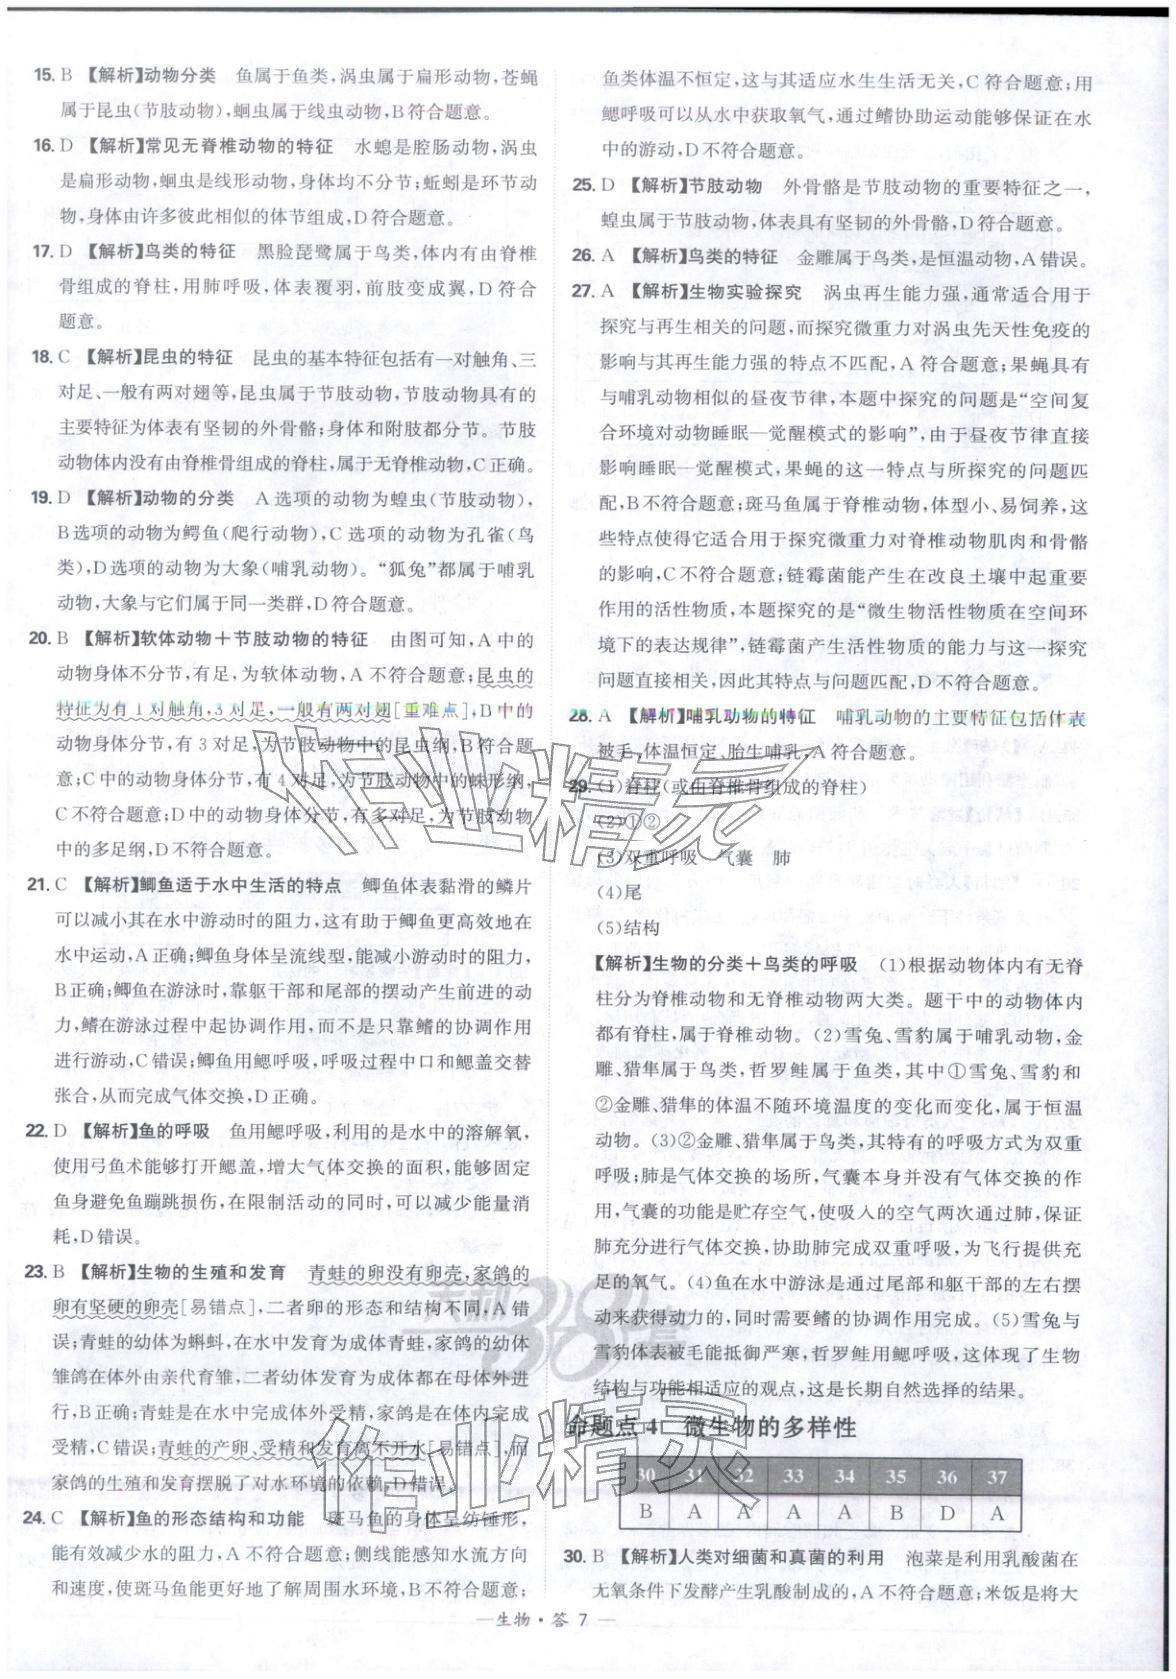 15. B 【解析】动物分类　鱼属于鱼类,涡虫属于扁形动物,苍蝇
属于昆虫(节肢动物),蛔虫属于线虫动物,B符合题意。
16. D 【解析】常见无脊椎动物的特征　水螅是腔肠动物,涡虫
是扁形动物,蛔虫是线形动物,身体均不分节;蚯蚓是环节动
物,身体由许多彼此相似的体节组成,D符合题意。
17. D 【解析】鸟类的特征　黑脸琵鹭属于鸟类,体内有由脊椎
骨组成的脊柱,用肺呼吸,体表覆羽,前肢变成翼,D符合
题意。
18. C 【解析】昆虫的特征　昆虫的基本特征包括有一对触角、三
对足、一般有两对翅等,昆虫属于节肢动物,节肢动物具有的
主要特征为体表有坚韧的外骨骼;身体和附肢都分节。节肢
动物体内没有由脊椎骨组成的脊柱,属于无脊椎动物,C正确。
19. D 【解析】动物的分类　A选项的动物为蝗虫(节肢动物),
B选项的动物为鳄鱼(爬行动物),C选项的动物为孔雀(鸟
类),D选项的动物为大象(哺乳动物)。“狐兔”都属于哺乳
动物,大象与它们属于同一类群,D符合题意。
20. B 【解析】软体动物＋节肢动物的特征　由图可知,A中的
动物身体不分节,有足,为软体动物,A不符合题意;昆虫的
特征为有1对触角,3对足,一般有两对翅[重难点],B中的
动物身体分节,有3对足,为节肢动物中的昆虫纲,B符合题
意;C中的动物身体分节,有4对足,为节肢动物中的蛛形纲,
C不符合题意;D中的动物身体分节,有多对足,为节肢动物
中的多足纲,D不符合题意。
21. C 【解析】鲫鱼适于水中生活的特点　鲫鱼体表黏滑的鳞片
可以减小其在水中游动时的阻力,这有助于鲫鱼更高效地在
水中运动,A正确;鲫鱼身体呈流线型,能减小游动时的阻力,
B正确;鲫鱼在游泳时,靠躯干部和尾部的摆动产生前进的动
力,鳍在游泳过程中起协调作用,而不是只靠鳍的协调作用
进行游动,C错误;鲫鱼用鳃呼吸,呼吸过程中口和鳃盖交替
张合,从而完成气体交换,D正确。
22. D 【解析】鱼的呼吸　鱼用鳃呼吸,利用的是水中的溶解氧,
使用弓鱼术能够打开鳃盖,增大气体交换的面积,能够固定
鱼身避免鱼蹦跳损伤,在限制活动的同时,可以减少能量消
耗,D错误。
23. B 【解析】生物的生殖和发育　青蛙的卵没有卵壳,家鸽的
卵有坚硬的卵壳[易错点],二者卵的形态和结构不同,A错
误;青蛙的幼体为蝌蚪,在水中发育为成体青蛙,家鸽的幼体
雏鸽在体外由亲代育雏,二者幼体发育为成体都在母体外进行,
B正确;青蛙是在水中完成体外受精,家鸽是在体内完成
受精,C错误;青蛙的产卵、受精和发育离不开水[易错点],而
家鸽的生殖和发育摆脱了对水环境的依赖,D错误。
24. C 【解析】鱼的形态结构和功能　斑马鱼的身体呈纺锤形,
能有效减少水的阻力,A不符合题意;侧线能感知水流方向
和速度,使斑马鱼能更好地了解周围水环境,B不符合题意;
鱼类体温不恒定,这与其适应水生生活无关,C符合题意;用
鳃呼吸可以从水中获取氧气,通过鳍协助运动能够保证在水
中的游动,D不符合题意。
25. D 【解析】节肢动物　外骨骼是节肢动物的重要特征之一,
蝗虫属于节肢动物,体表具有坚韧的外骨骼,D符合题意。
26. A 【解析】鸟类的特征　金雕属于鸟类,是恒温动物,A错误。
27. A 【解析】生物实验探究　涡虫再生能力强,通常适合用于
探究与再生相关的问题,而探究微重力对涡虫先天性免疫的
影响与其再生能力强的特点不匹配,A符合题意;果蝇具有
与哺乳动物相似的昼夜节律,本题中探究的问题是“空间复
合环境对动物睡眠—觉醒模式的影响”,由于昼夜节律直接
影响睡眠—觉醒模式,果蝇的这一特点与所探究的问题匹
配,B不符合题意;斑马鱼属于脊椎动物,体型小、易饲养,这
些特点使得它适合用于探究微重力对脊椎动物肌肉和骨骼
的影响,C不符合题意;链霉菌能产生在改良土壤中起重要
作用的活性物质,本题探究的是“微生物活性物质在空间环
境下的表达规律”,链霉菌产生活性物质的能力与这一探究
问题直接相关,因此其特点与问题匹配,D不符合题意。
28. A 【解析】哺乳动物的特征　哺乳动物的主要特征包括体表
被毛,体温恒定、胎生哺乳,A符合题意。
29. (1)脊柱(或由脊椎骨组成的脊柱)
(2)①②
(3)双重呼吸　气囊　肺
(4)尾
(5)结构
【解析】生物的分类＋鸟类的呼吸　(1)根据动物体内有无脊
柱分为脊椎动物和无脊椎动物两大类。题干中的动物体内
都有脊柱,属于脊椎动物。(2)雪兔、雪豹属于哺乳动物,金
雕、猎隼属于鸟类,哲罗鲑属于鱼类,其中①雪兔、雪豹和
②金雕、猎隼的体温不随环境温度的变化而变化,属于恒温
动物。(3)②金雕、猎隼属于鸟类,其特有的呼吸方式为双重
呼吸;肺是气体交换的场所,气囊本身并没有气体交换的作
用,气囊的功能是贮存空气,使吸入的空气两次通过肺,保证
肺充分进行气体交换,协助肺完成双重呼吸,为飞行提供充
足的氧气。(4)鱼在水中游泳是通过尾部和躯干部的左右摆
动来获得动力的,同时需要鳍的协调作用完成。(5)雪兔与
雪豹体表被毛能抵御严寒,哲罗鲑用鳃呼吸,这体现了生物
结构与功能相适应的观点,这是长期自然选择的结果。
命题点4　微生物的多样性
30 31 32 33 34 35 36 37
B A A A A B D A
30. B 【解析】人类对细菌和真菌的利用　泡菜是利用乳酸菌在
无氧条件下发酵产生乳酸制成的,A不符合题意;米饭是将大
—生物·答 7—
作业精灵
天利38套
作业精灵